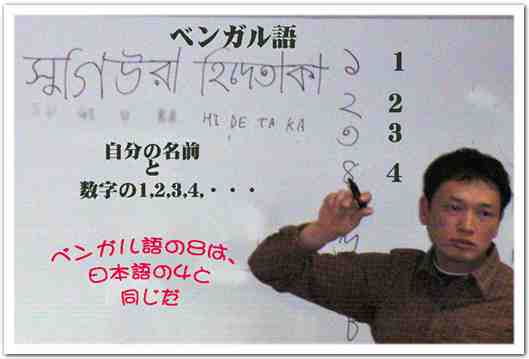 ベンガル語
সুগিউরা হিদেতাকা
SU GI U RA HI DE TA KA
১ 1
২ 2
৩ 3
৪ 4
自分の名前
と
数字の1,2,3,4,・・・
ベンガル語の8は、
日本語の4と
同じだ